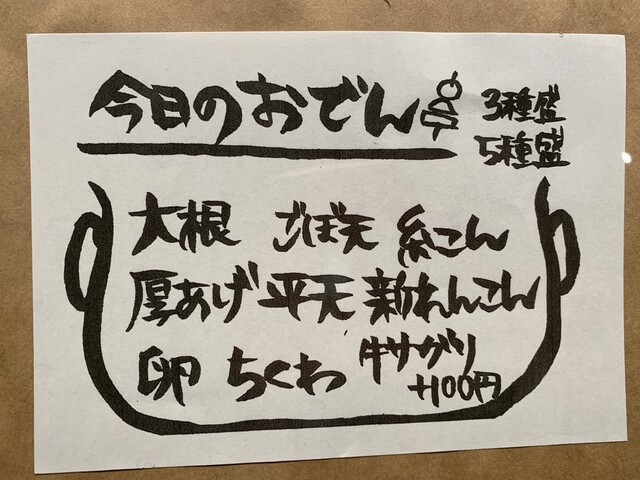 今日のおでん
3種盛
5種盛
大根 ごぼ天 糸こん
厚あげ 平天 新れんこん
卵 ちくわ 牛サガリ
+100円